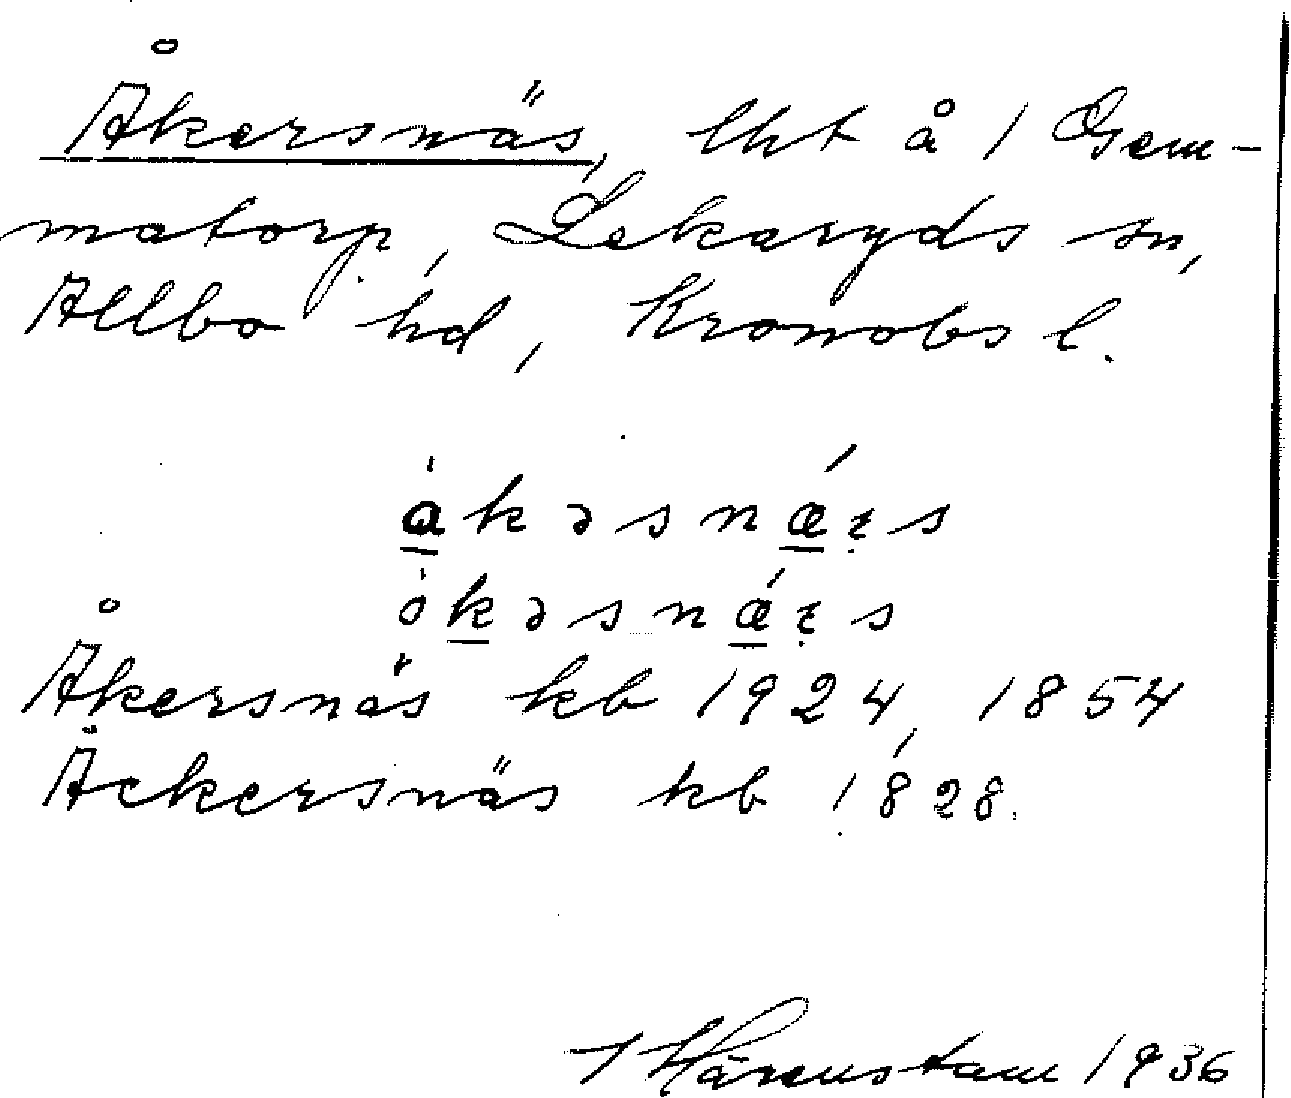 Åkersnäs, lht å 1 Gem-
matorp, Lekaryds sn,
Allbo hd, Kronobs l.
àkəsnǽɪs
òkəsnǽɪs
Åkersnäs kb 1924, 1854
Åckersnäs kb 1828.
Härenstam 1936